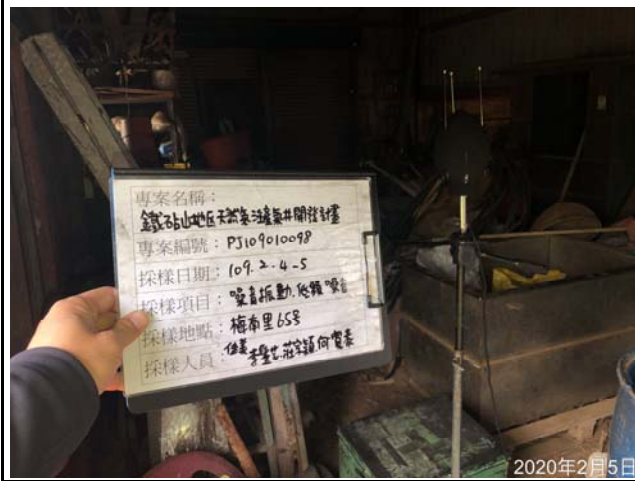 專案名稱：
鐵砧山地區天然氣注產氣井開發計畫
專案編號：PJ109010098
採樣日期：109.2.4-5
採樣項目：噪音振動、低頻噪音
採樣地點：梅南里65號
採樣人員：
2020年2月5日